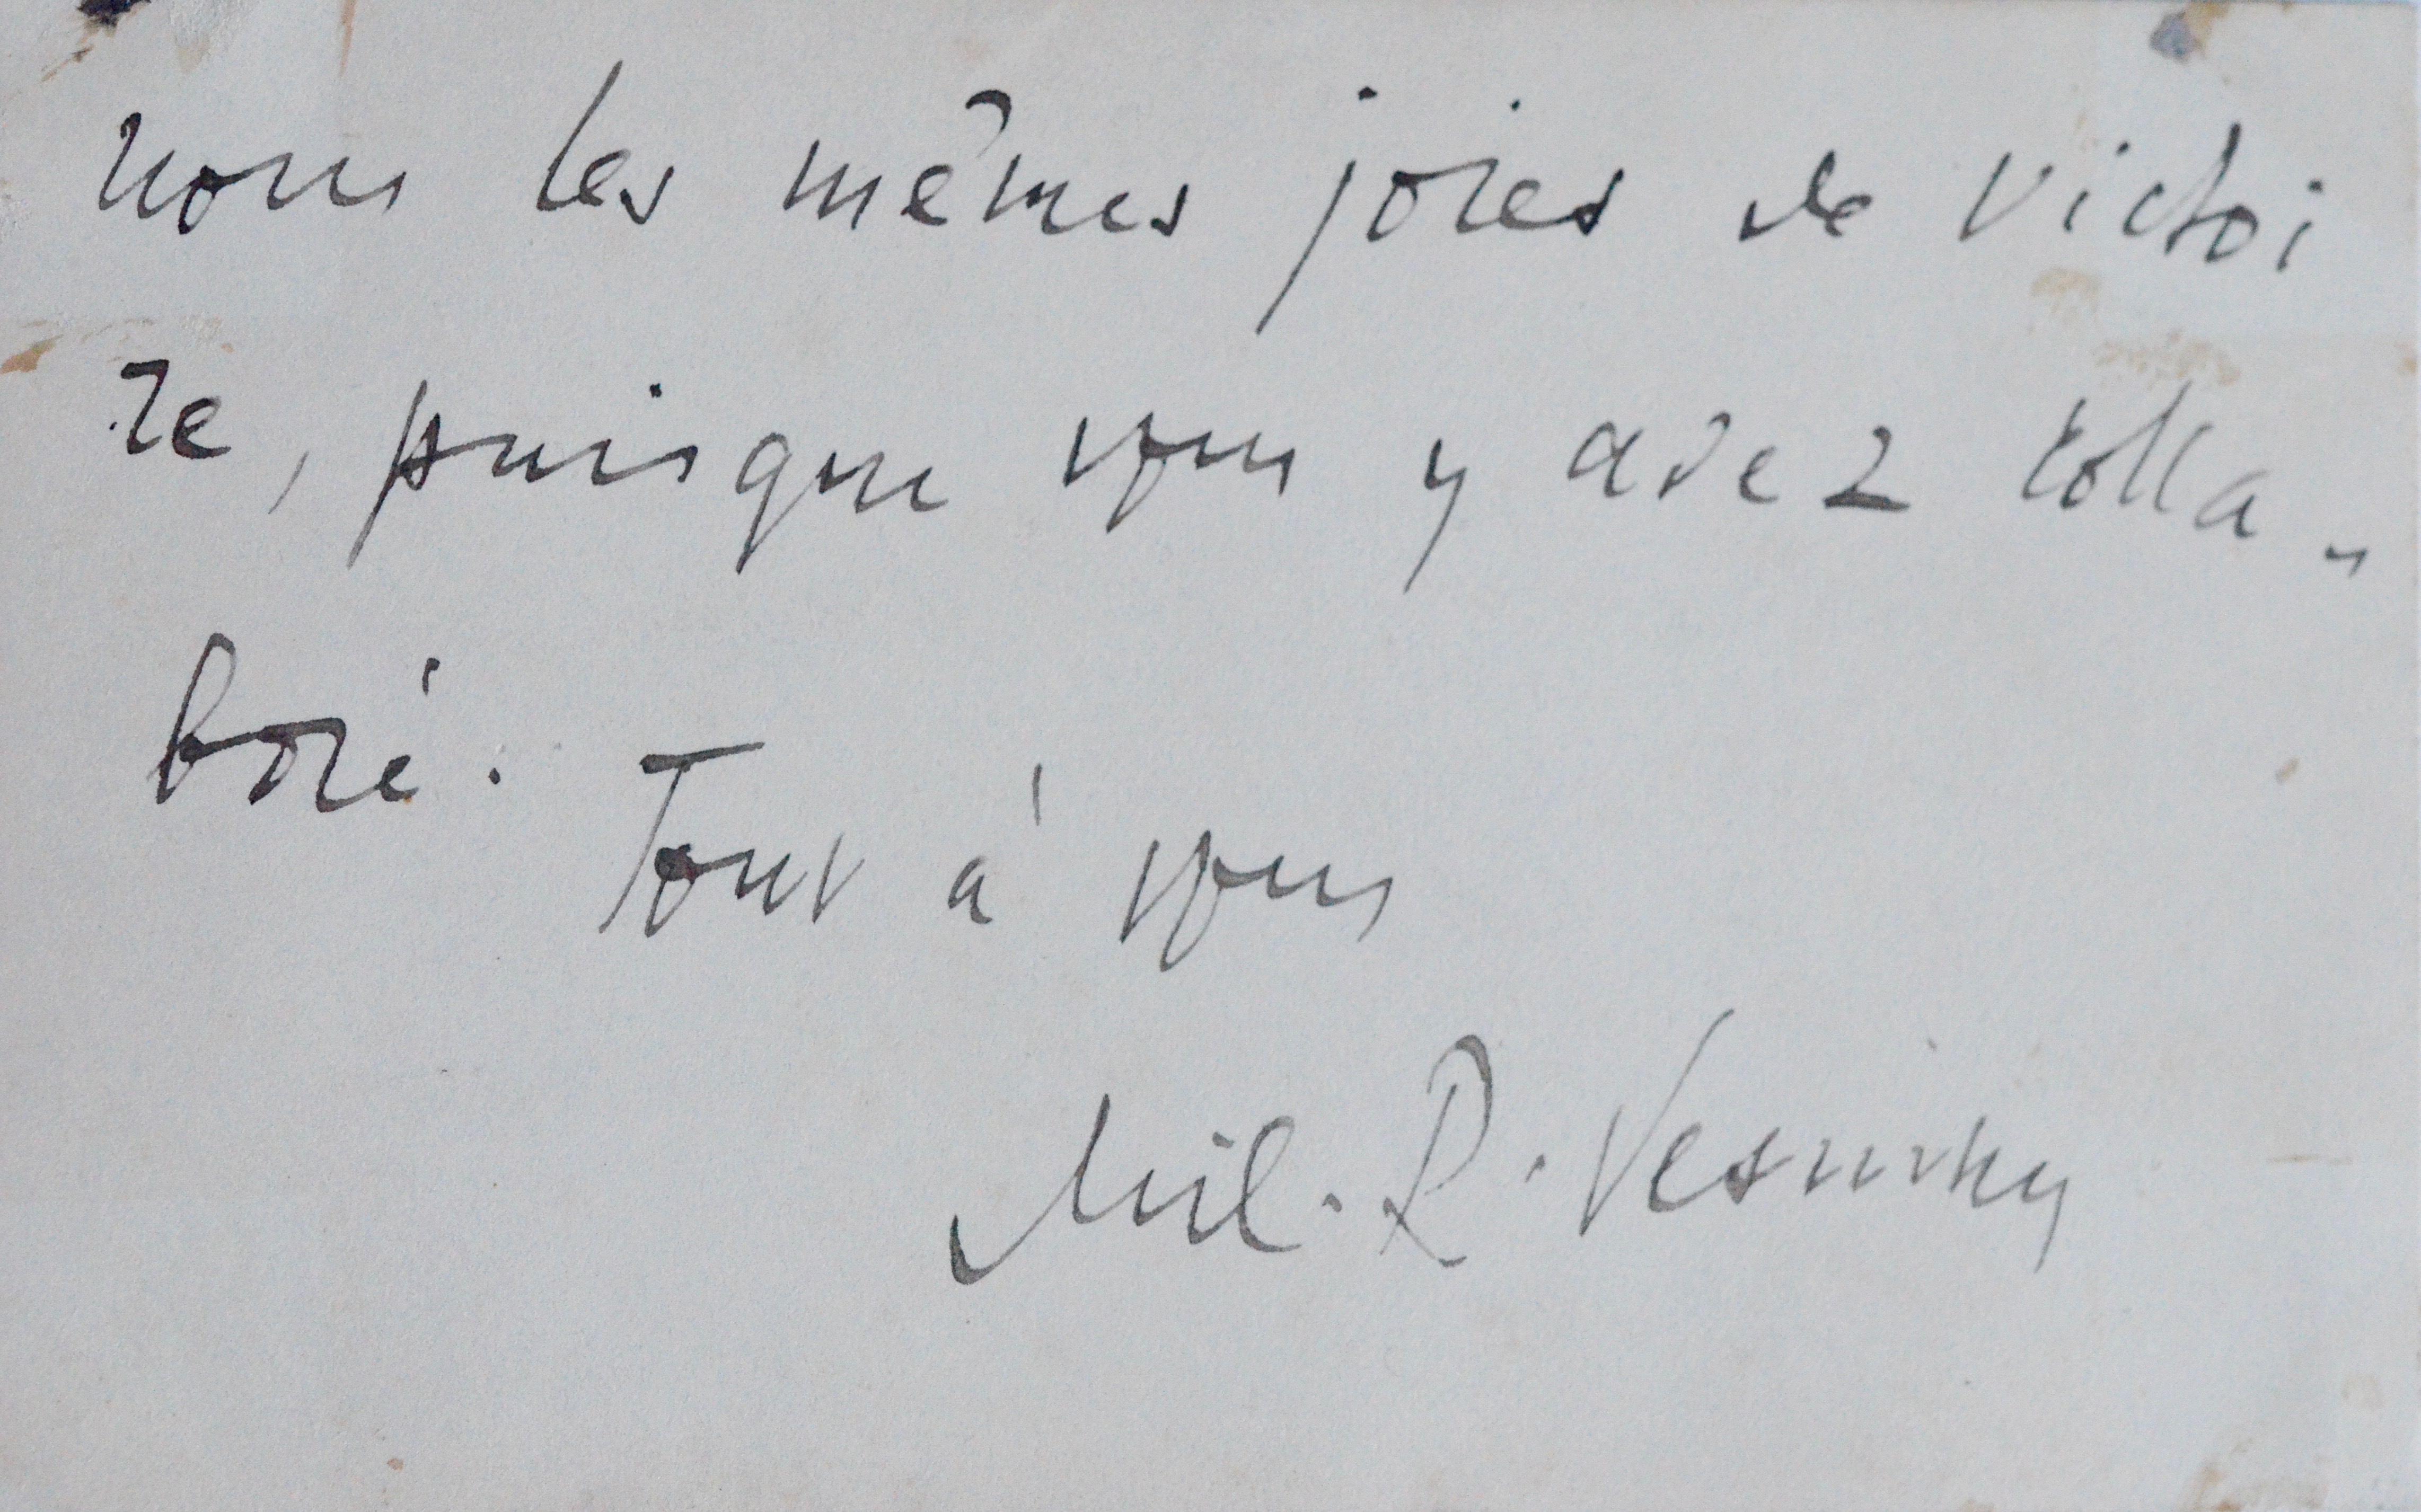 nous les mêmes joies de victoi
re, puisque vous y avez colla-
boré. Tout à vous
Mil. R. Vesnitch